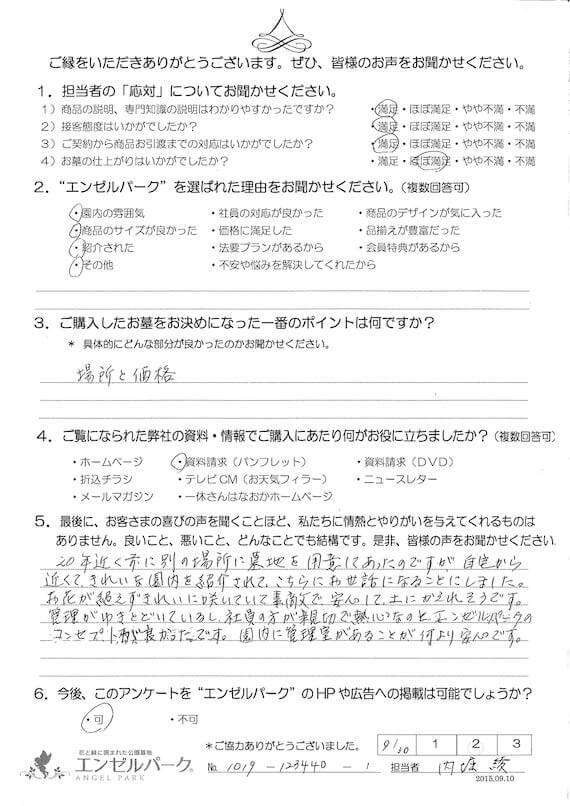 ご縁をいただきありがとうございます。ぜひ、皆様のお声をお聞かせください。
1．担当者の「応対」についてお聞かせください。
1）商品の説明、専門知識の説明はわかりやすかったですか？ ・満足・ほぼ満足・やや不満・不満
2）接客態度はいかがでしたか？ ・満足・ほぼ満足・やや不満・不満
3）ご契約から商品お引渡までの対応はいかがでしたか？ ・満足・ほぼ満足・やや不満・不満
4）お墓の仕上がりはいかがでしたか？ ・満足・ほぼ満足・やや不満・不満
2．“エンゼルパーク”を選ばれた理由をお聞かせください。（複数回答可）
・園内の雰囲気 ・社員の対応が良かった ・商品のデザインが気に入った
・商品のサイズが良かった ・価格に満足した ・品揃えが豊富だった
・紹介された ・法要プランがあるから ・会員特典があるから
・その他 ・不安や悩みを解決してくれたから
3．ご購入したお墓をお決めになった一番のポイントは何ですか？
＊ 具体的にどんな部分が良かったのかお聞かせください。
場所と価格
4．ご覧になられた弊社の資料・情報でご購入にあたり何がお役に立ちましたか？（複数回答可）
・ホームページ ・資料請求（パンフレット） ・資料請求（DVD）
・折込チラシ ・テレビCM（お天気フィラー） ・ニュースレター
・メールマガジン ・一休さんはなおかホームページ
5．最後に、お客さまの喜びの声を聞くことほど、私たちに情熱とやりがいを与えてくれるものは
ありません。良いこと、悪いこと、どんなことでも結構です。是非、皆様の声をお聞かせください
20年近く前に別の場所に墓地を用意してあったのですが自宅から
近くて、きれいな園内を紹介されて、こちらにお世話になることにしました。
お花が絶えずきれいに咲いていて素敵で安心して、土にかえれそうです。
管理がゆきとどいているし、社員の方が親切で熱心なのとエンゼルパークの
コンセプトが良かったです。園内に管理室があることが何より安心です。
6．今後、このアンケートを“エンゼルパーク”のHPや広告への掲載は可能でしょうか？
・可 ・不可
＊ご協力ありがとうございました。 9/30 1 2 3
花と緑に囲まれた公園墓地
エンゼルパーク® № 1019-123440-1 担当者 内
ANGEL PARK 2015.09.10